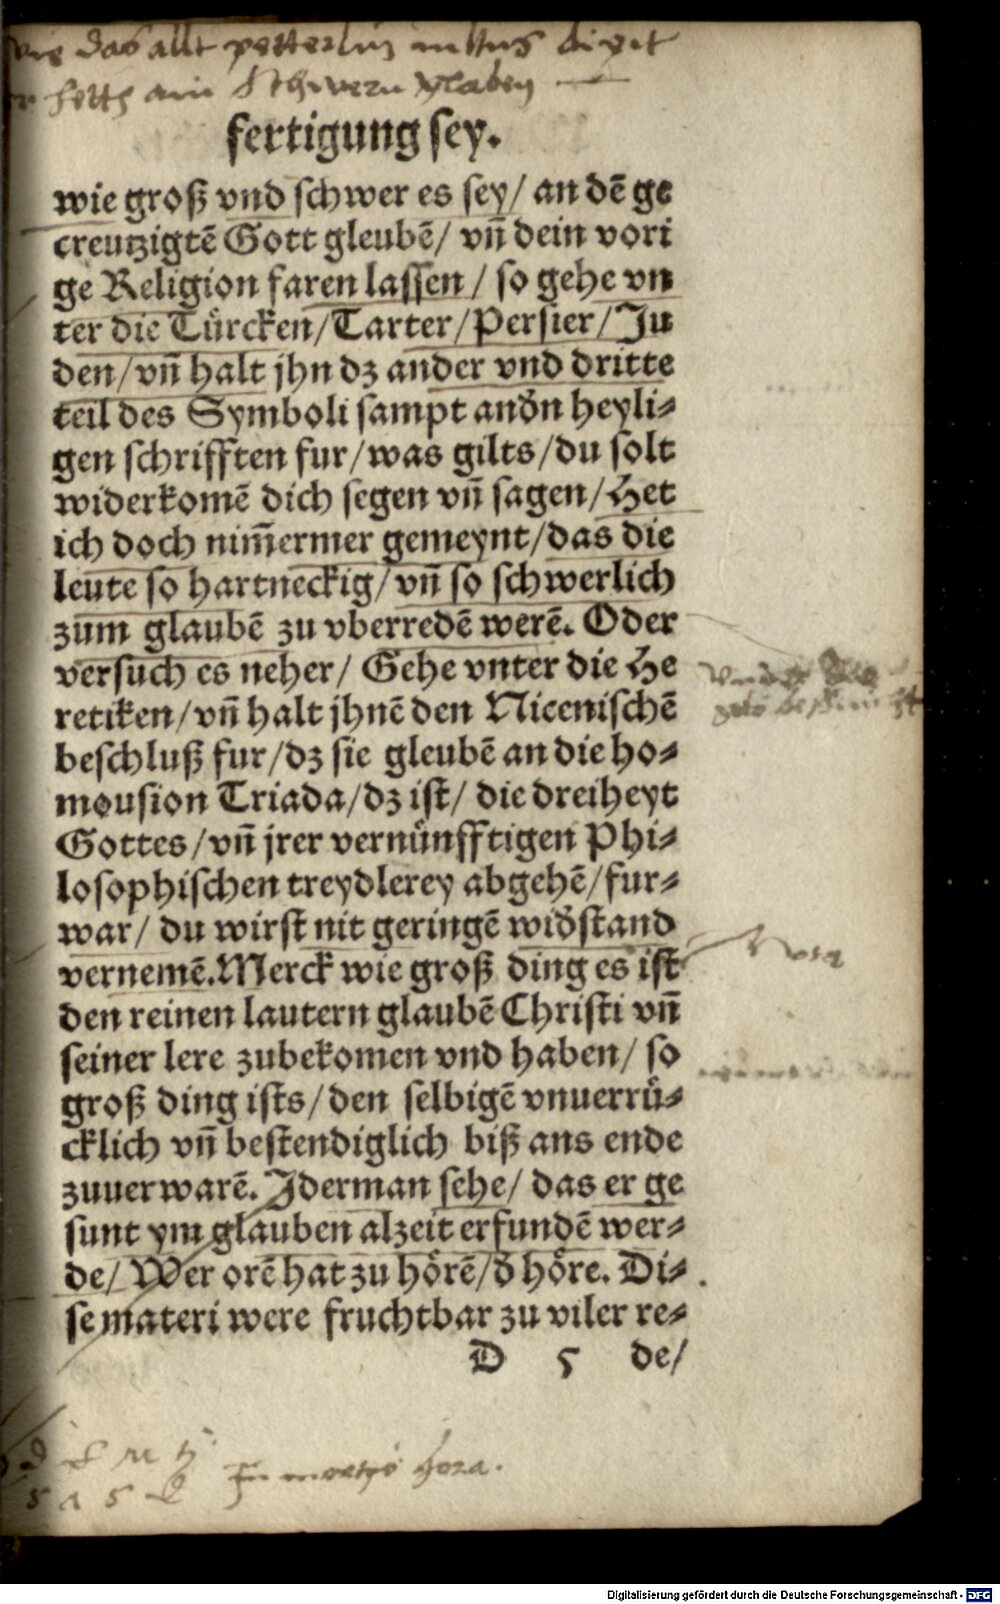 das allt
fertigung sey.
wie groß vnd schwer es sey/ an dē ge
creutzigtē Gott gleubē/ vñ dein vori
ge Religion faren lassen/ so gehe vn
ter die Türcken/Tarter/Persier/Ju
den/vñ halt jhn dz ander vnd dritte
teil des Symboli sampt andn heyli⸗
gen schrifften fur/was gilts/du solt
widerkomē dich segen vñ sagen/Het
ich doch nim̄ermer gemeynt/das die
leute so hartneckig/vñ so schwerlich
zum glaubē zu vberredē werē. Oder
versuch es neher/ Gehe vnter die He
retiken/vñ halt jhnē den Nicenischē
beschluß fur/dz sie gleubē an die ho⸗
mousion Triada/dz ist/ die dreiheyt
Gottes/vñ jrer vernünfftigen Phi⸗
losophischen treydlerey abgehē/fur⸗
war/ du wirst nit geringē widstand
vernemē.Merck wie groß ding es ist
den reinen lautern glaubē Christi vñ
seiner lere zubekomen vnd haben/ so
groß ding ists/den selbigē vnuerrü⸗
cklich vñ bestendiglich biß ans ende
zuuerwarē. Jderman sehe/ das er ge
sunt ym glauben alzeit erfundē wer⸗
de/ Wer orē hat zu hörē/d̄ höre. Di⸗
se materi were fruchtbar zu viler re⸗
D 5 de/
In mortis hora.
Digitalisierung gefördert durch die Deutsche Forschungsgemeinschaft - DFG